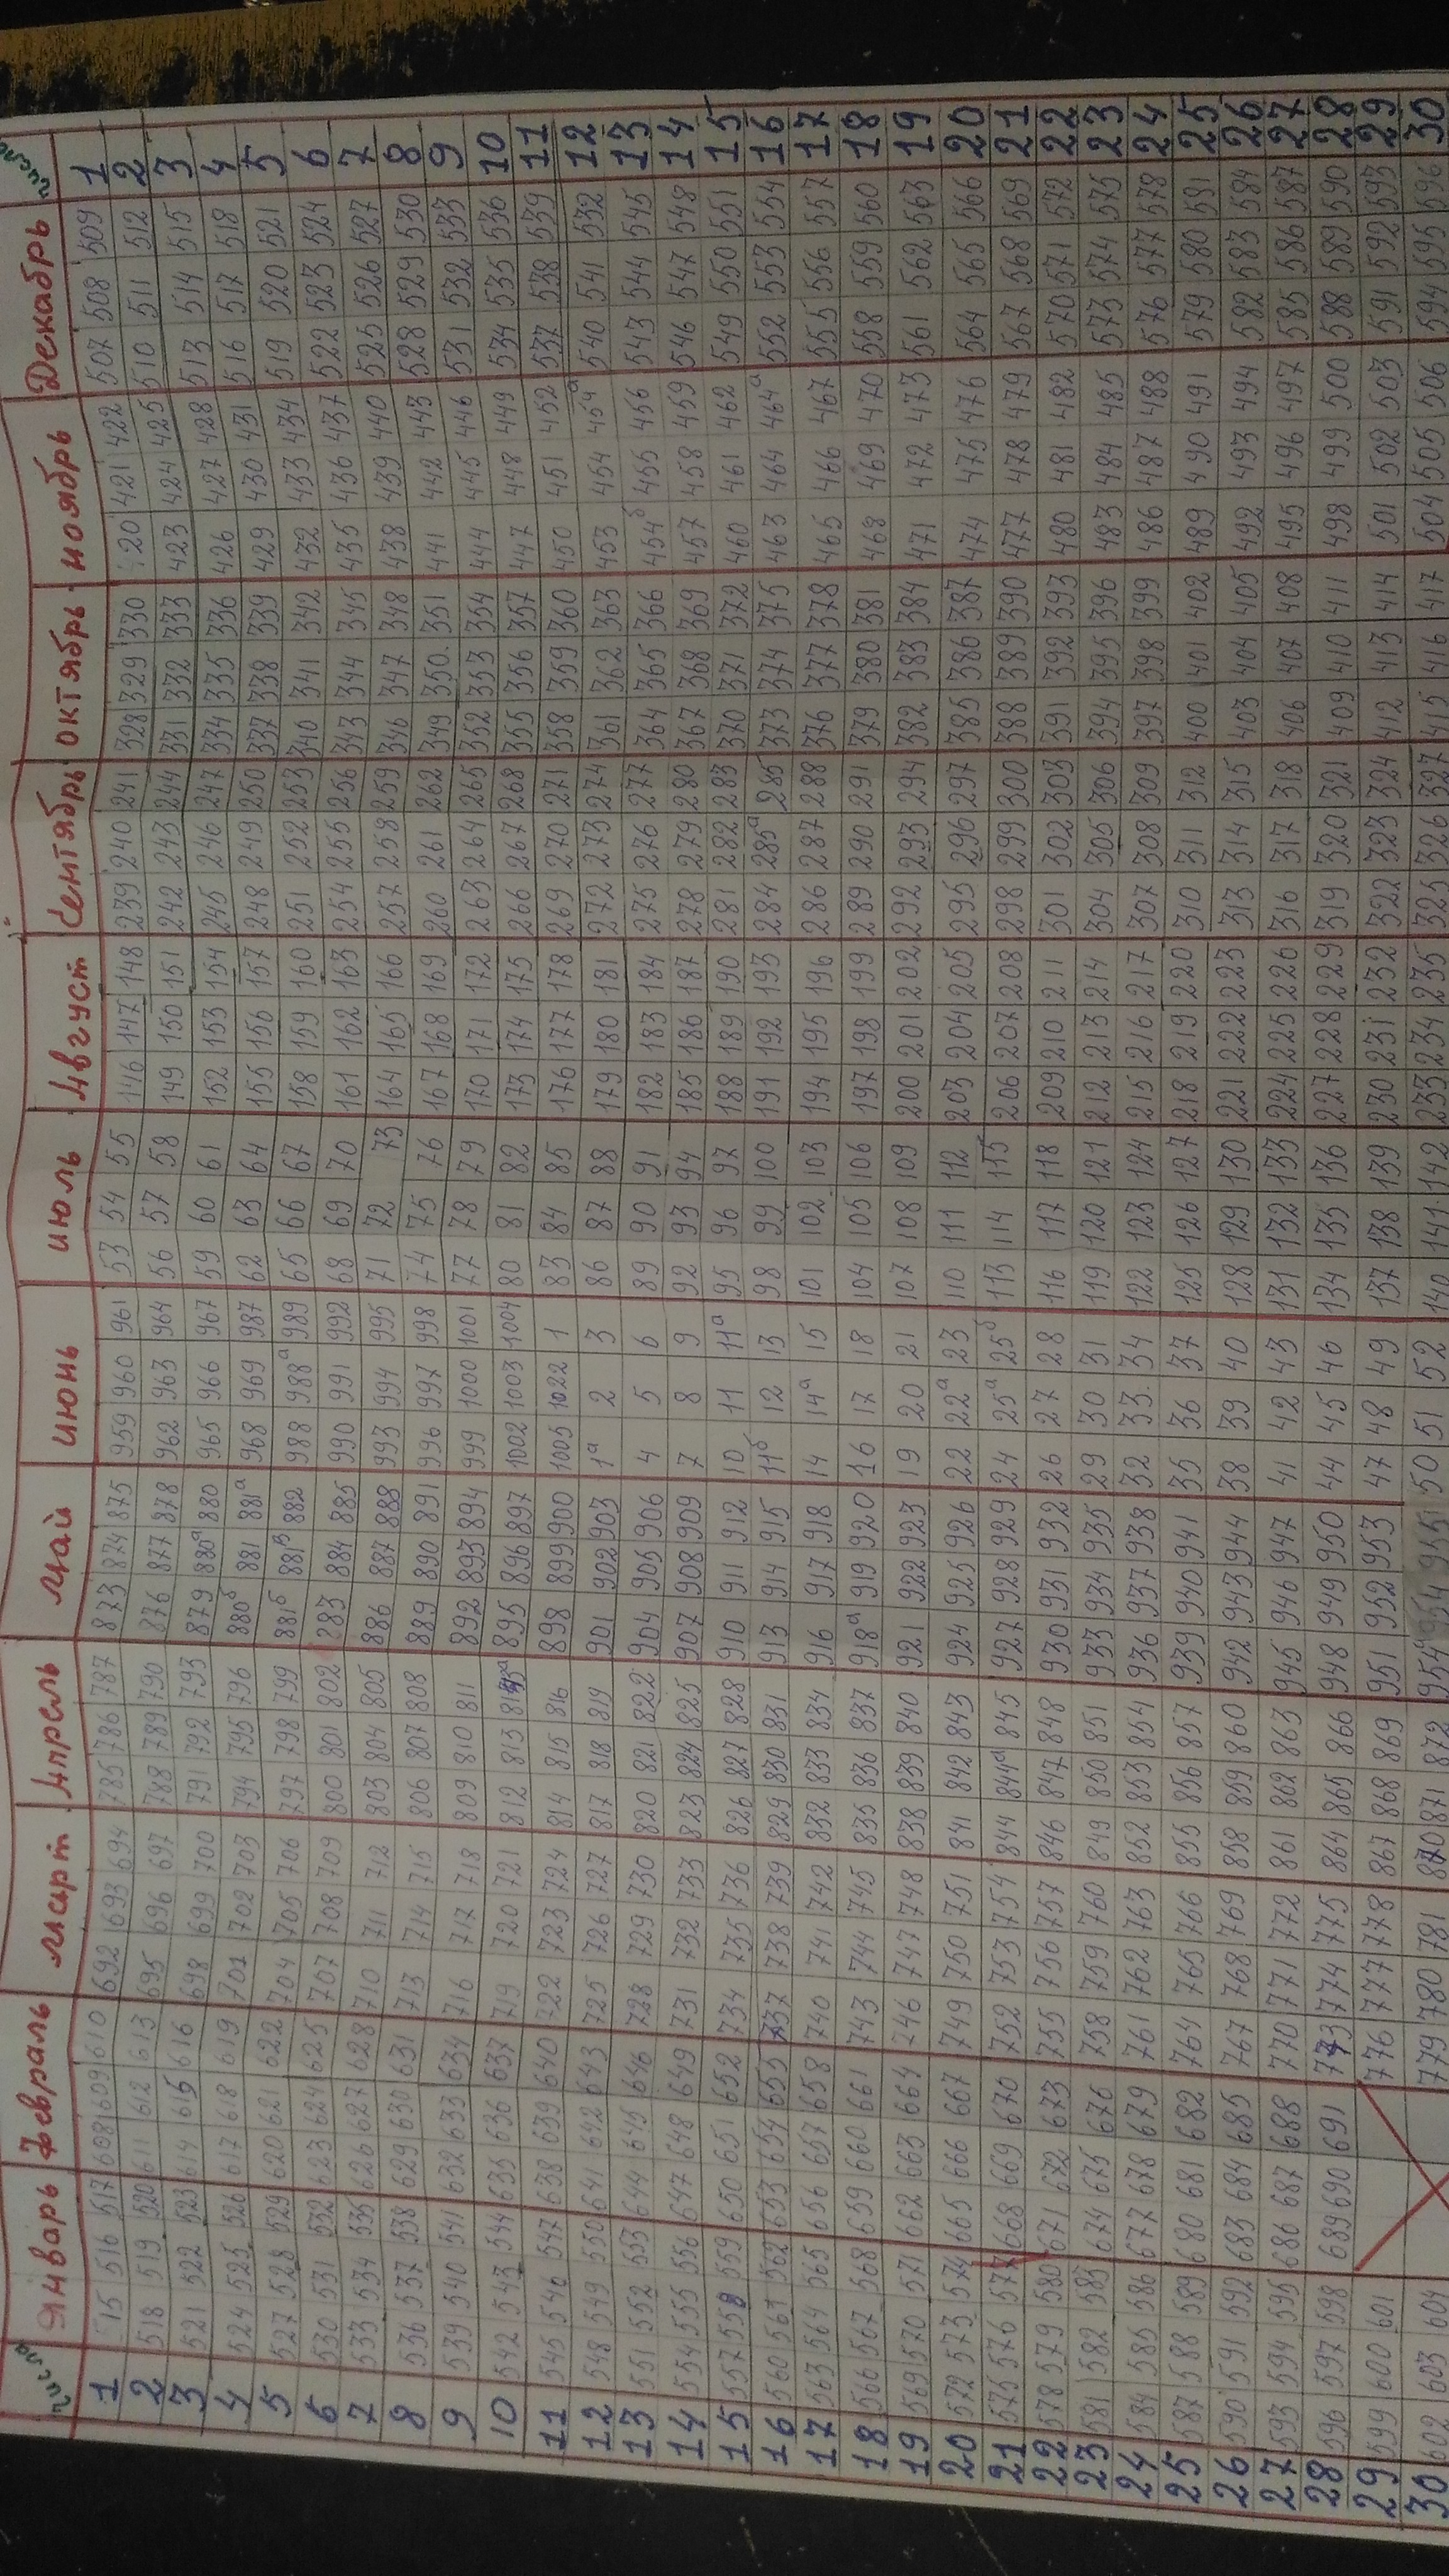 числа Январь Февраль Март Апрель Май Июнь Июль Август Сентябрь Октябрь Ноябрь Декабрь числа
1 15 516 517 608 609 610 692 693 694 785 786 787 873 874 875 959 960 961 53 54 55 146 147 148 239 240 241 328 329 330 20 421 422 507 508 509 1
2 518 519 520 611 612 613 695 696 697 788 789 790 876 877 878 962 963 964 56 57 58 149 150 151 242 243 244 331 332 333 423 424 425 510 511 512 2
3 521 522 523 614 615 616 698 699 700 791 792 793 879 880а 880 965 966 967 59 60 61 152 153 154 245 246 247 334 335 336 426 427 428 513 514 515 3
4 524 525 526 617 618 619 701 702 703 794 795 796 880б 881 881а 968 969 987 62 63 64 155 156 157 248 249 250 337 338 339 429 430 431 516 517 518 4
5 527 528 529 620 621 622 704 705 706 797 798 799 881б 881в 882 988 988а 989 65 66 67 158 159 160 251 252 253 340 341 342 432 433 434 519 520 521 5
6 530 531 532 623 624 625 707 708 709 800 801 802 283 884 885 990 991 992 68 69 70 161 162 163 254 255 256 343 344 345 435 436 437 522 523 524 6
7 533 534 535 626 627 628 710 711 712 803 804 805 886 887 888 993 994 995 71 72 73 164 165 166 257 258 259 346 347 348 438 439 440 525 526 527 7
8 536 537 538 629 630 631 713 714 715 806 807 808 889 890 891 996 997 998 74 75 76 167 168 169 260 261 262 349 350. 351 441 442 443 528 529 530 8
9 539 540 541 632 633 634 716 717 718 809 810 811 892 893 894 999 1000 1001 77 78 79 170 171 172 263 264 265 352 353 354 444 445 446 531 532 533 9
10 542 543 544 635 636 637 719 720 721 812 813 813а 895 896 897 1002 1003 1004 80 81 82 173 174 175 266 267 268 355 356 357 447 448 449 534 535 536 10
11 545 546 547 638 639 640 722 723 724 814 815 816 898 899 900 1005 1022 1 83 84 85 176 177 178 269 270 271 358 359 360 450 451 452 537 538 539 11
12 548 549 550 641 642 643 725 726 727 817 818 819 901 902 903 1а 2 3 86 87 88 179 180 181 272 273 274 361 362 363 453 454 454а 540 541 532 12
13 551 552 553 644 645 646 728 729 730 820 821 822 904 905 906 4 5 6 89 90 91 182 183 184 275 276 277 364 365 366 454б 455 456 543 544 545 13
14 554 555 556 647 648 649 731 732 733 823 824 825 907 908 909 7 8 9 92 93 94 185 186 187 278 279 280 367 368 369 457 458 459 546 547 548 14
15 557 558 559 650 651 652 734 735 736 826 827 828 910 911 912 10 11 11а 95 96 97 188 189 190 281 282 283 370 371 372 460 461 462 549 550 551 15
16 560 561 562 653 654 655 737 738 739 829 830 831 913 914 915 11б 12 13 98 99 100 191 192 193 284 285а 285 373 374 375 463 464 464а 552 553 554 16
17 563 564 565 656 657 658 740 741 742 832 833 834 916 917 918 14 14а 15 101 102 103 194 195 196 286 287 288 376 377 378 465 466 467 555 556 557 17
18 566 567 568 659 660 661 743 744 745 835 836 837 918а 919 920 16 17 18 104 105 106 197 198 199 289 290 291 379 380 381 468 469 470 558 559 560 18
19 569 570 571 662 663 664 746 747 748 838 839 840 921 922 923 19 20 21 107 108 109 200 201 202 292 293 294 382 383 384 471 472 473 561 562 563 19
20 572 573 574 665 666 667 749 750 751 841 842 843 924 925 926 22 22а 23 110 111 112 203 204 205 295 296 297 385 386 387 474 475 476 564 565 566 20
21 575 576 577 668 669 670 752 753 754 844 844а 845 927 928 929 24 25а 25б 113 114 115 206 207 208 298 299 300 388 389 390 477 478 479 567 568 569 21
22 578 579 580 671 672 673 755 756 757 846 847 848 930 931 932 26 27 28 116 117 118 209 210 211 301 302 303 391 392 393 480 481 482 570 571 572 22
23 581 582 583 674 675 676 758 759 760 849 850 851 933 934 935 29 30 31 119 120 121 212 213 214 304 305 306 394 395 396 483 484 485 573 574 575 23
24 584 585 586 677 678 679 761 762 763 852 853 854 936 937 938 32 33. 34 122 123 124 215 216 217 307 308 309 397 398 399 486 487 488 576 577 578 24
25 587 588 589 680 681 682 764 765 766 855 856 857 939 940 941 35 36 37 125 126 127 218 219 220 310 311 312 400 401 402 489 490 491 579 580 581 25
26 590 591 592 683 684 685 767 768 769 858 859 860 942 943 944 38 39 40 128 129 130 221 222 223 313 314 315 403 404 405 492 493 494 582 583 584 26
27 593 594 595 686 687 688 770 771 772 861 862 863 945 946 947 41 42 43 131 132 133 224 225 226 316 317 318 406 407 408 495 496 497 585 586 587 27
28 596 597 598 689 690 691 773 774 775 864 865 866 948 949 950 44 45 46 134 135 136 227 228 229 319 320 321 409 410 411 498 499 500 588 589 590 28
29 599 600 601 776 777 778 867 868 869 951 952 953 47 48 49 137 138 139 230 231 232 322 323 324 412 413 414 501 502 503 591 592 593 29
30 602 603 604 779 780 781 870 871 872 954а 954 955 50 51 52 140 141 142 233 234 235 325 326 327 415 416 417 504 505 506 594 595 596 30